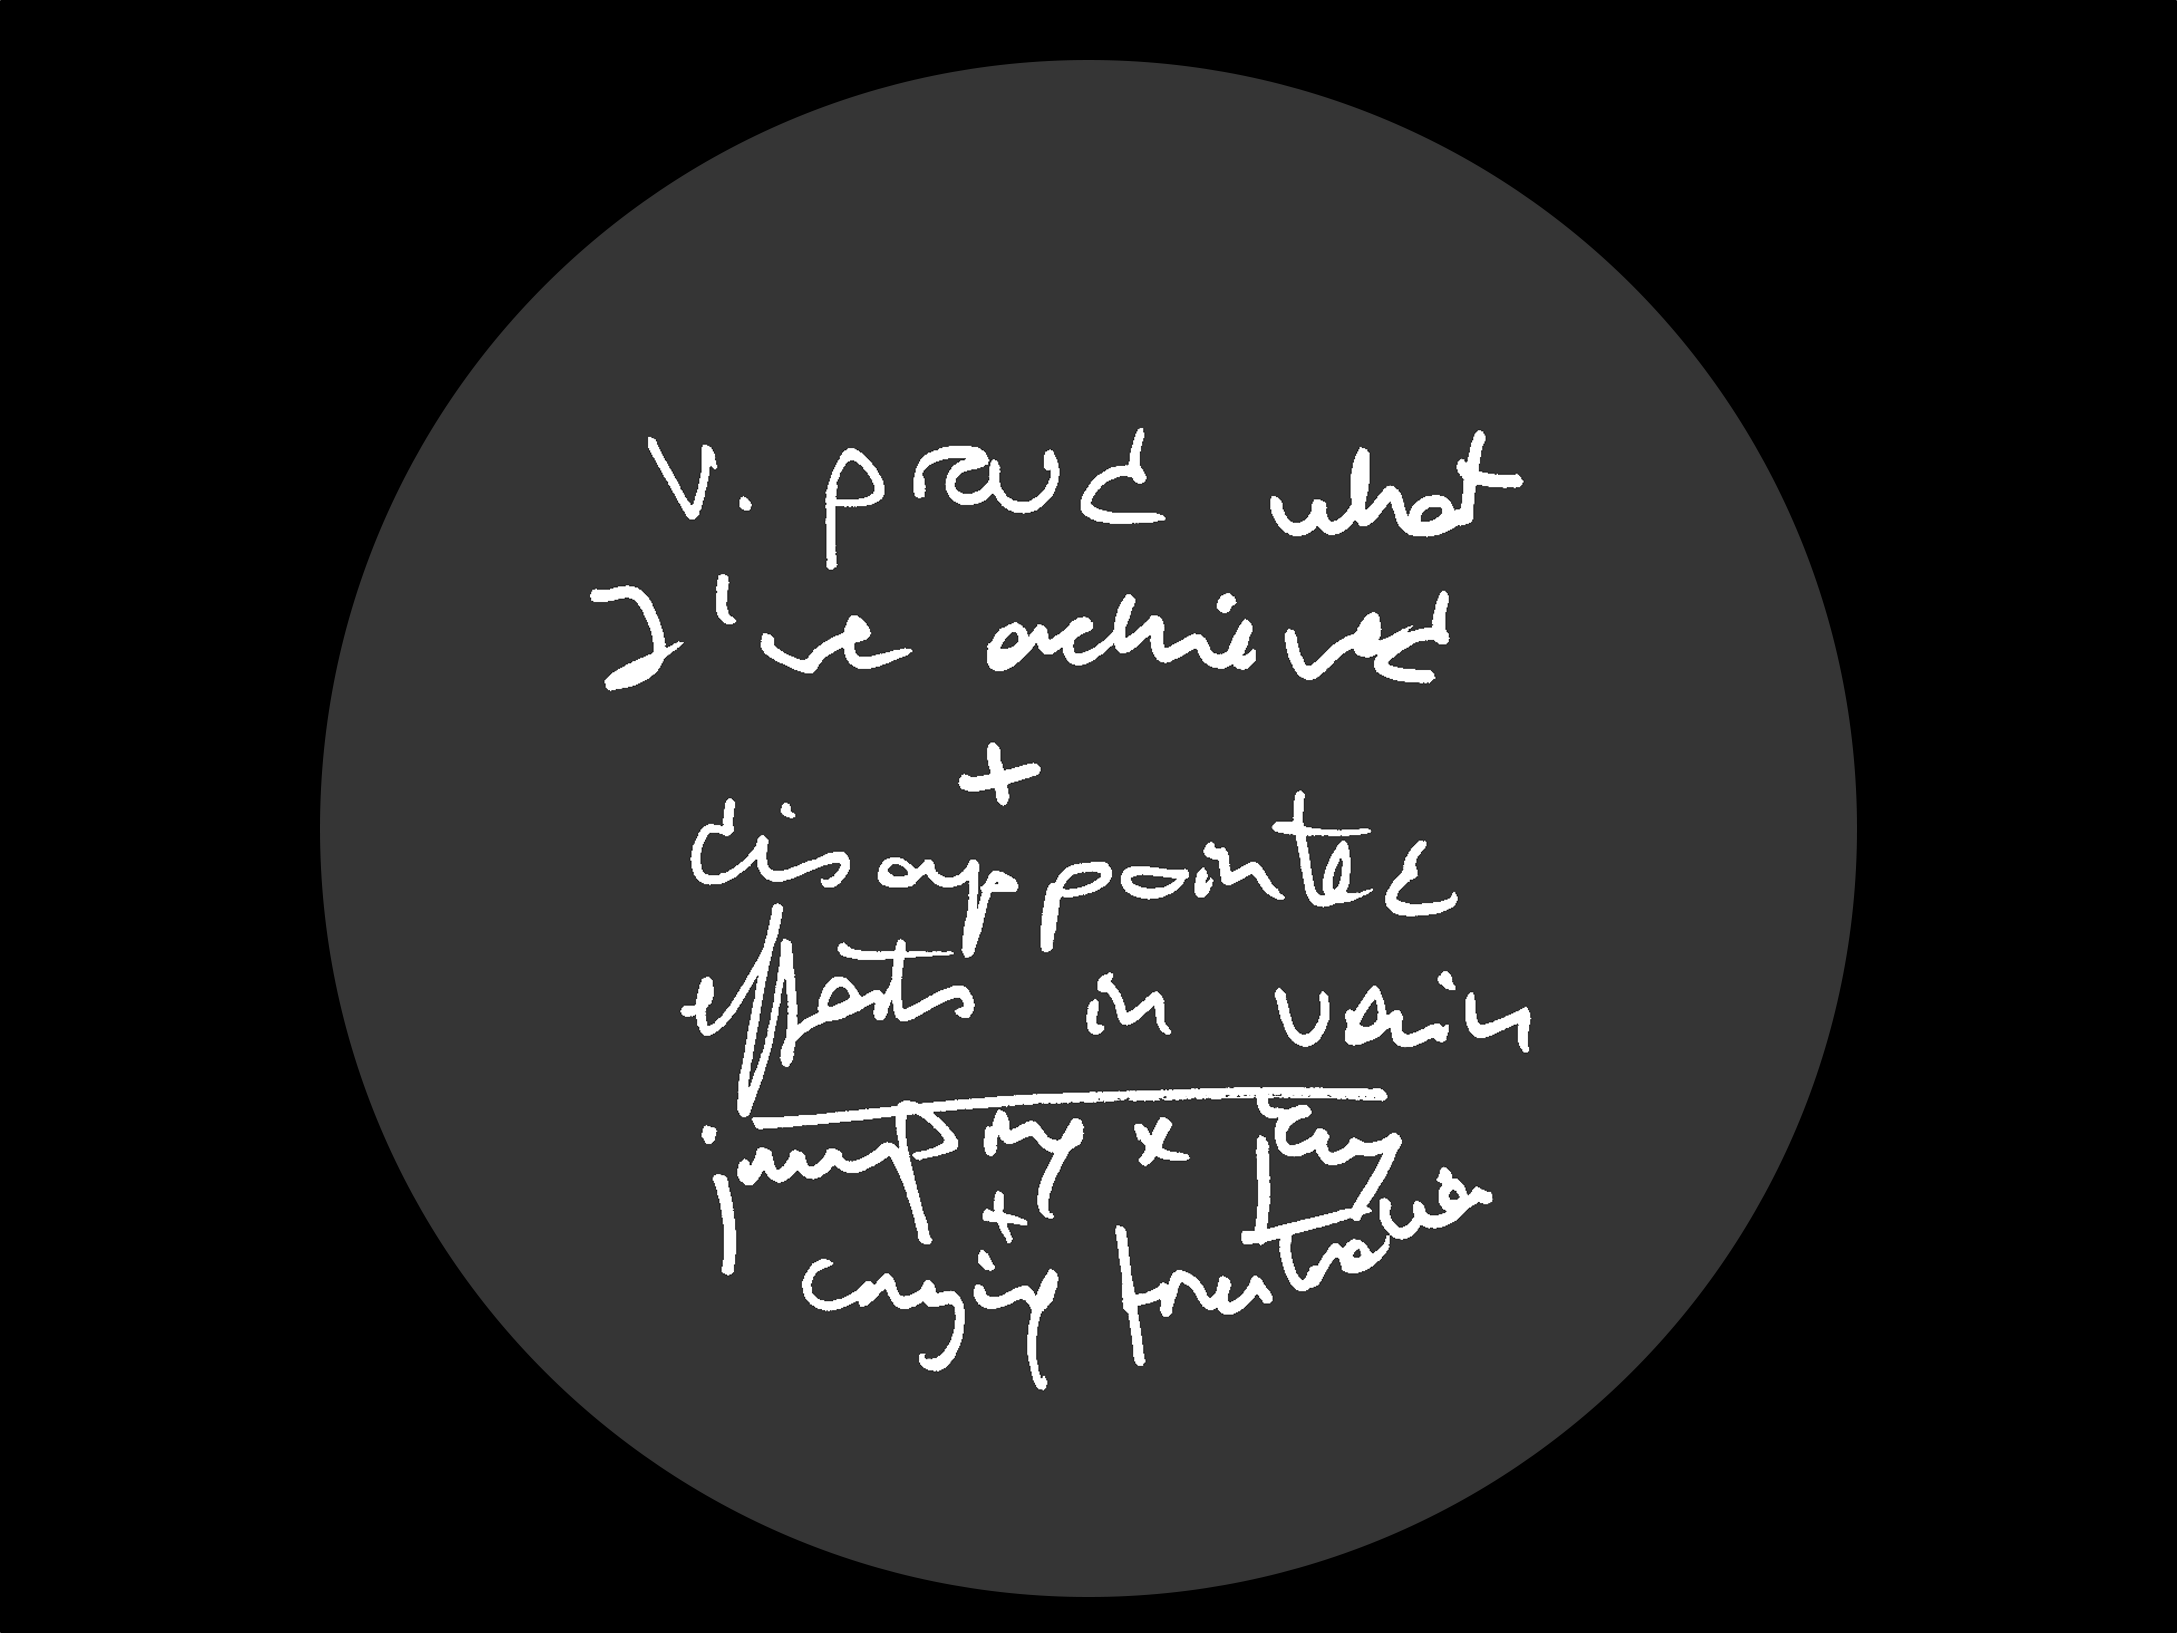 v. proud what
I've achieved
+
disappointed
efforts in vain
jumping x
+
crying frustration